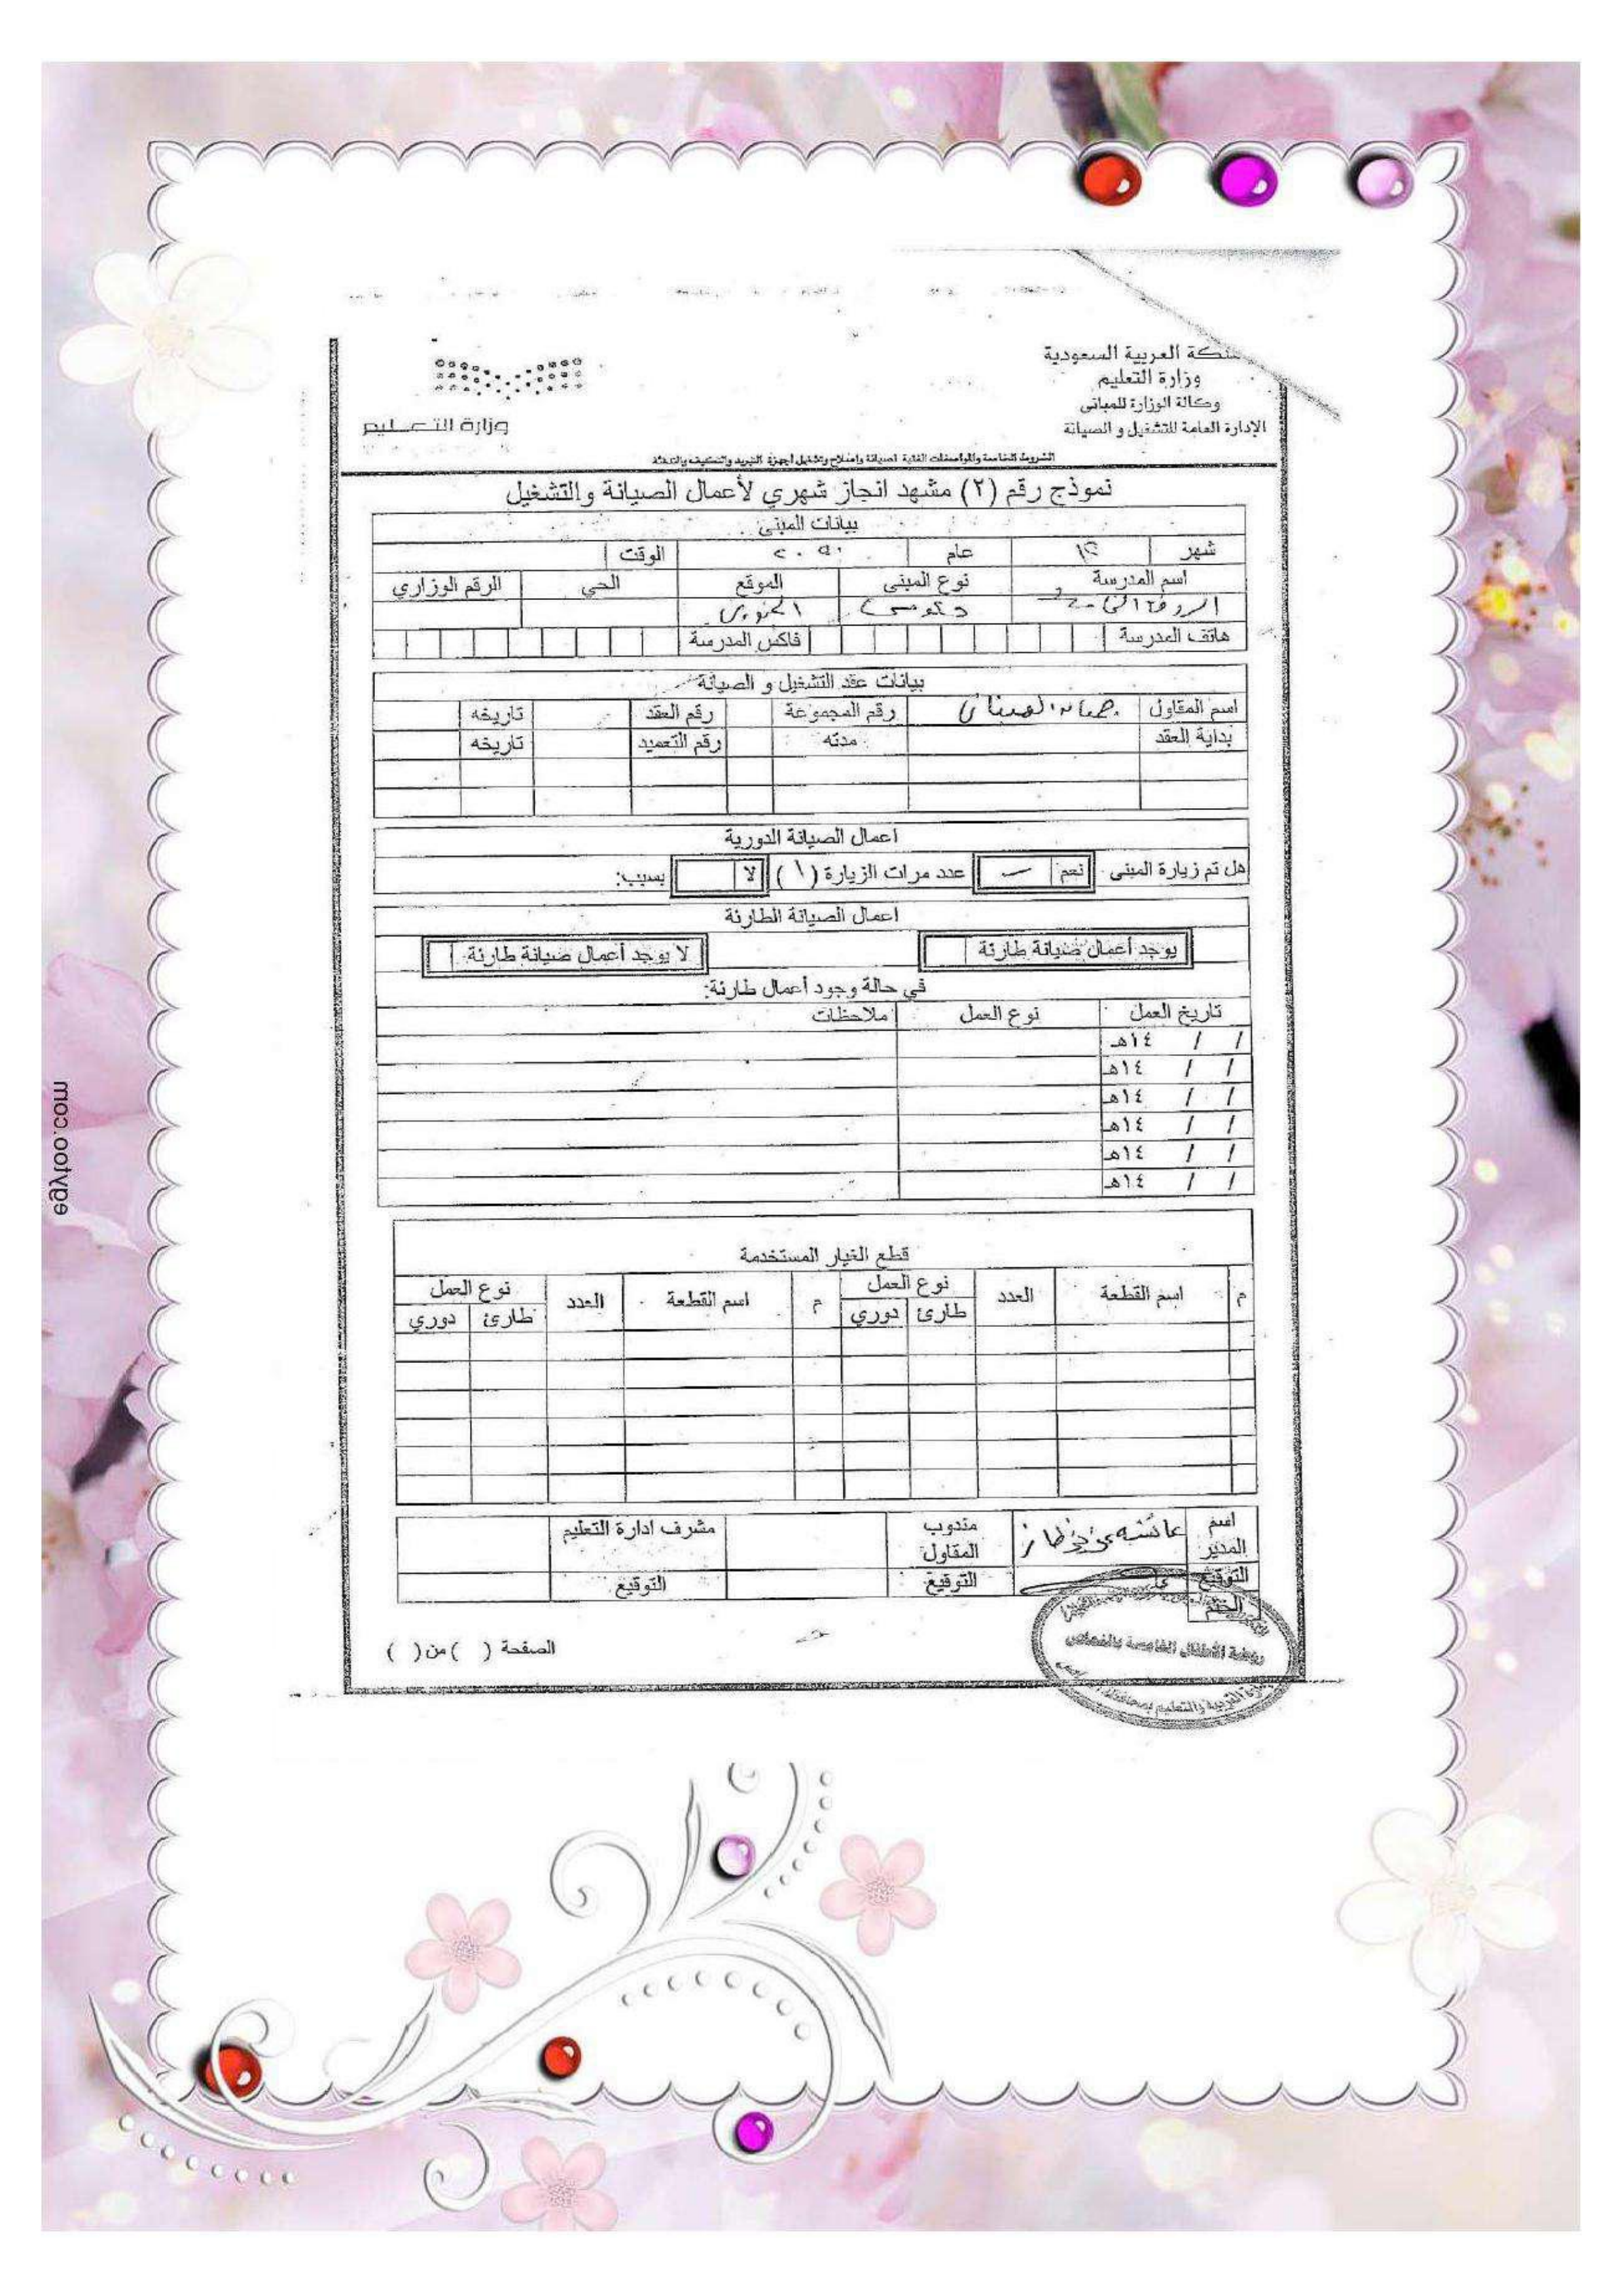 المملكة العربية السعودية
وزارة التعليم
وكالة الوزارة للمباني
الإدارة العامة للتشغيل و الصيانة
وزارة التعليم
الشروط الخاصة والمواصفات الفنية لصيانة وإصلاح وتشغيل أجهزة التبريد والتكييف والتدفئة
نموذج رقم (٢) مشهد انجاز شهري لأعمال الصيانة والتشغيل
بيانات المبنى
شهر ١٢ عام الوقت
اسم المدرسة نوع المبنى الموقع الحي الرقم الوزاري
الروضة حكومي
هاتف المدرسة فاكس المدرسة
بيانات عقد التشغيل و الصيانة
اسم المقاول رقم المجموعة رقم العقد تاريخه
بداية العقد مدته رقم التعميد تاريخه
اعمال الصيانة الدورية
هل تم زيارة المبنى نعم عدد مرات الزيارة (١) لا بسبب:
اعمال الصيانة الطارئة
يوجد أعمال صيانة طارئة لا يوجد أعمال صيانة طارئة
في حالة وجود أعمال طارئة:
تاريخ العمل نوع العمل ملاحظات
/ / ١٤هـ
/ / ١٤هـ
/ / ١٤هـ
/ / ١٤هـ
/ / ١٤هـ
/ / ١٤هـ
قطع الغيار المستخدمة
م اسم القطعة العدد نوع العمل م اسم القطعة العدد نوع العمل
طارئ دوري طارئ دوري
اسم المدير عائشه مندوب المقاول مشرف ادارة التعليم
التوقيع التوقيع التوقيع
الختم
روضة الأطفال الخامسة
الصفحة ( ) من ( )
egytoo.com